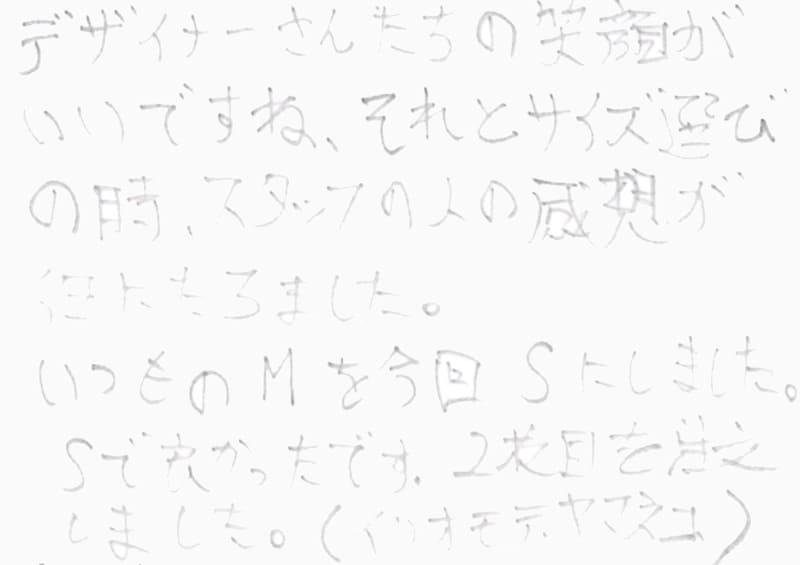 デザイナーさんたちの笑顔が
いいですね、それとサイズ選び
の時、スタッフの人の感想が
役にたちました。
いつものMを今回Sにしました。
Sで良かったです。2枚目を注文
しました。(イリオモテヤマネコ)